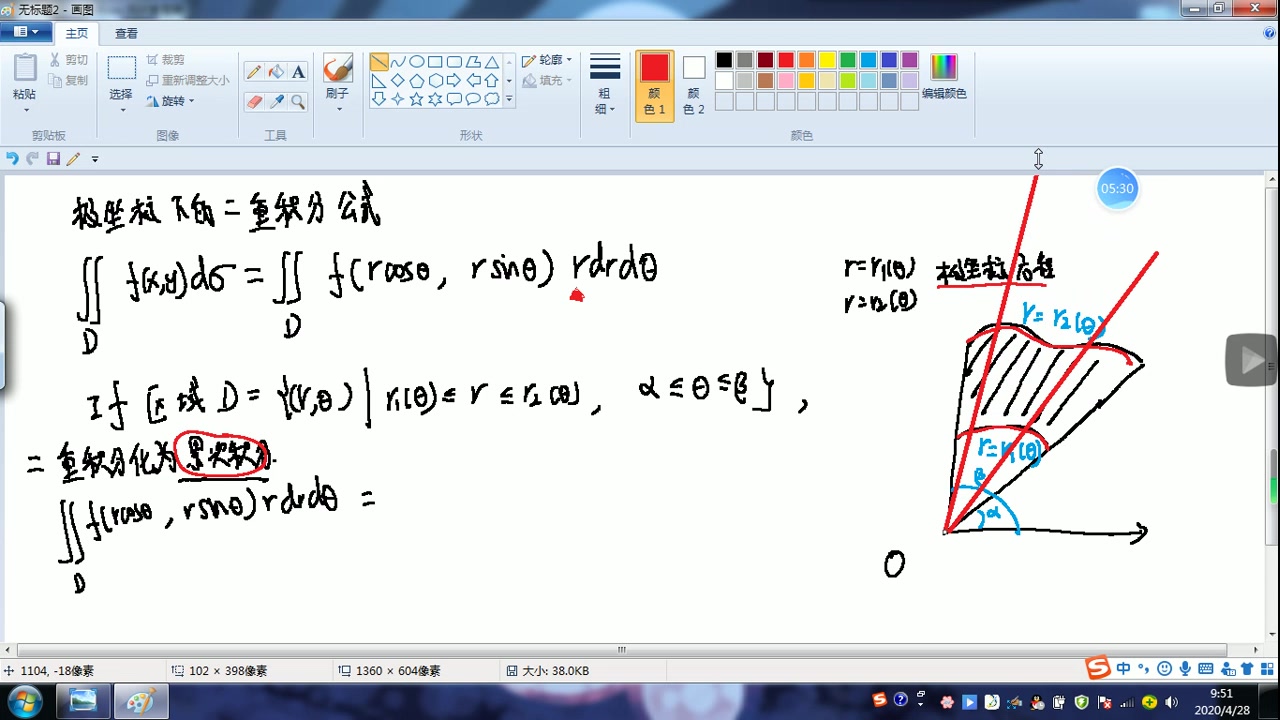 无标题2 - 画图
主页 查看
粘贴 剪切 复制 剪贴板
选择 裁剪 重新调整大小 旋转 图像
工具
刷子
轮廓 填充 形状
粗细
颜色 1 颜色 2 编辑颜色 颜色
05:30
极坐标下的二重积分公式
∬_D f(x,y)dσ = ∬_D f(rcosθ, rsinθ) rdrdθ
If 区域 D = {(r,θ) | r₁(θ) ≤ r ≤ r₂(θ), α ≤ θ ≤ β},
二重积分化为累次积分.
∬_D f(rcosθ, rsinθ) rdrdθ =
r=r₁(θ) 极坐标方程
r=r₂(θ)
r=r₂(θ)
r=r₁(θ)
β
α
O
1104, -18像素 102 × 398像素 1360 × 604像素 大小: 38.0KB
中
9:51
2020/4/28